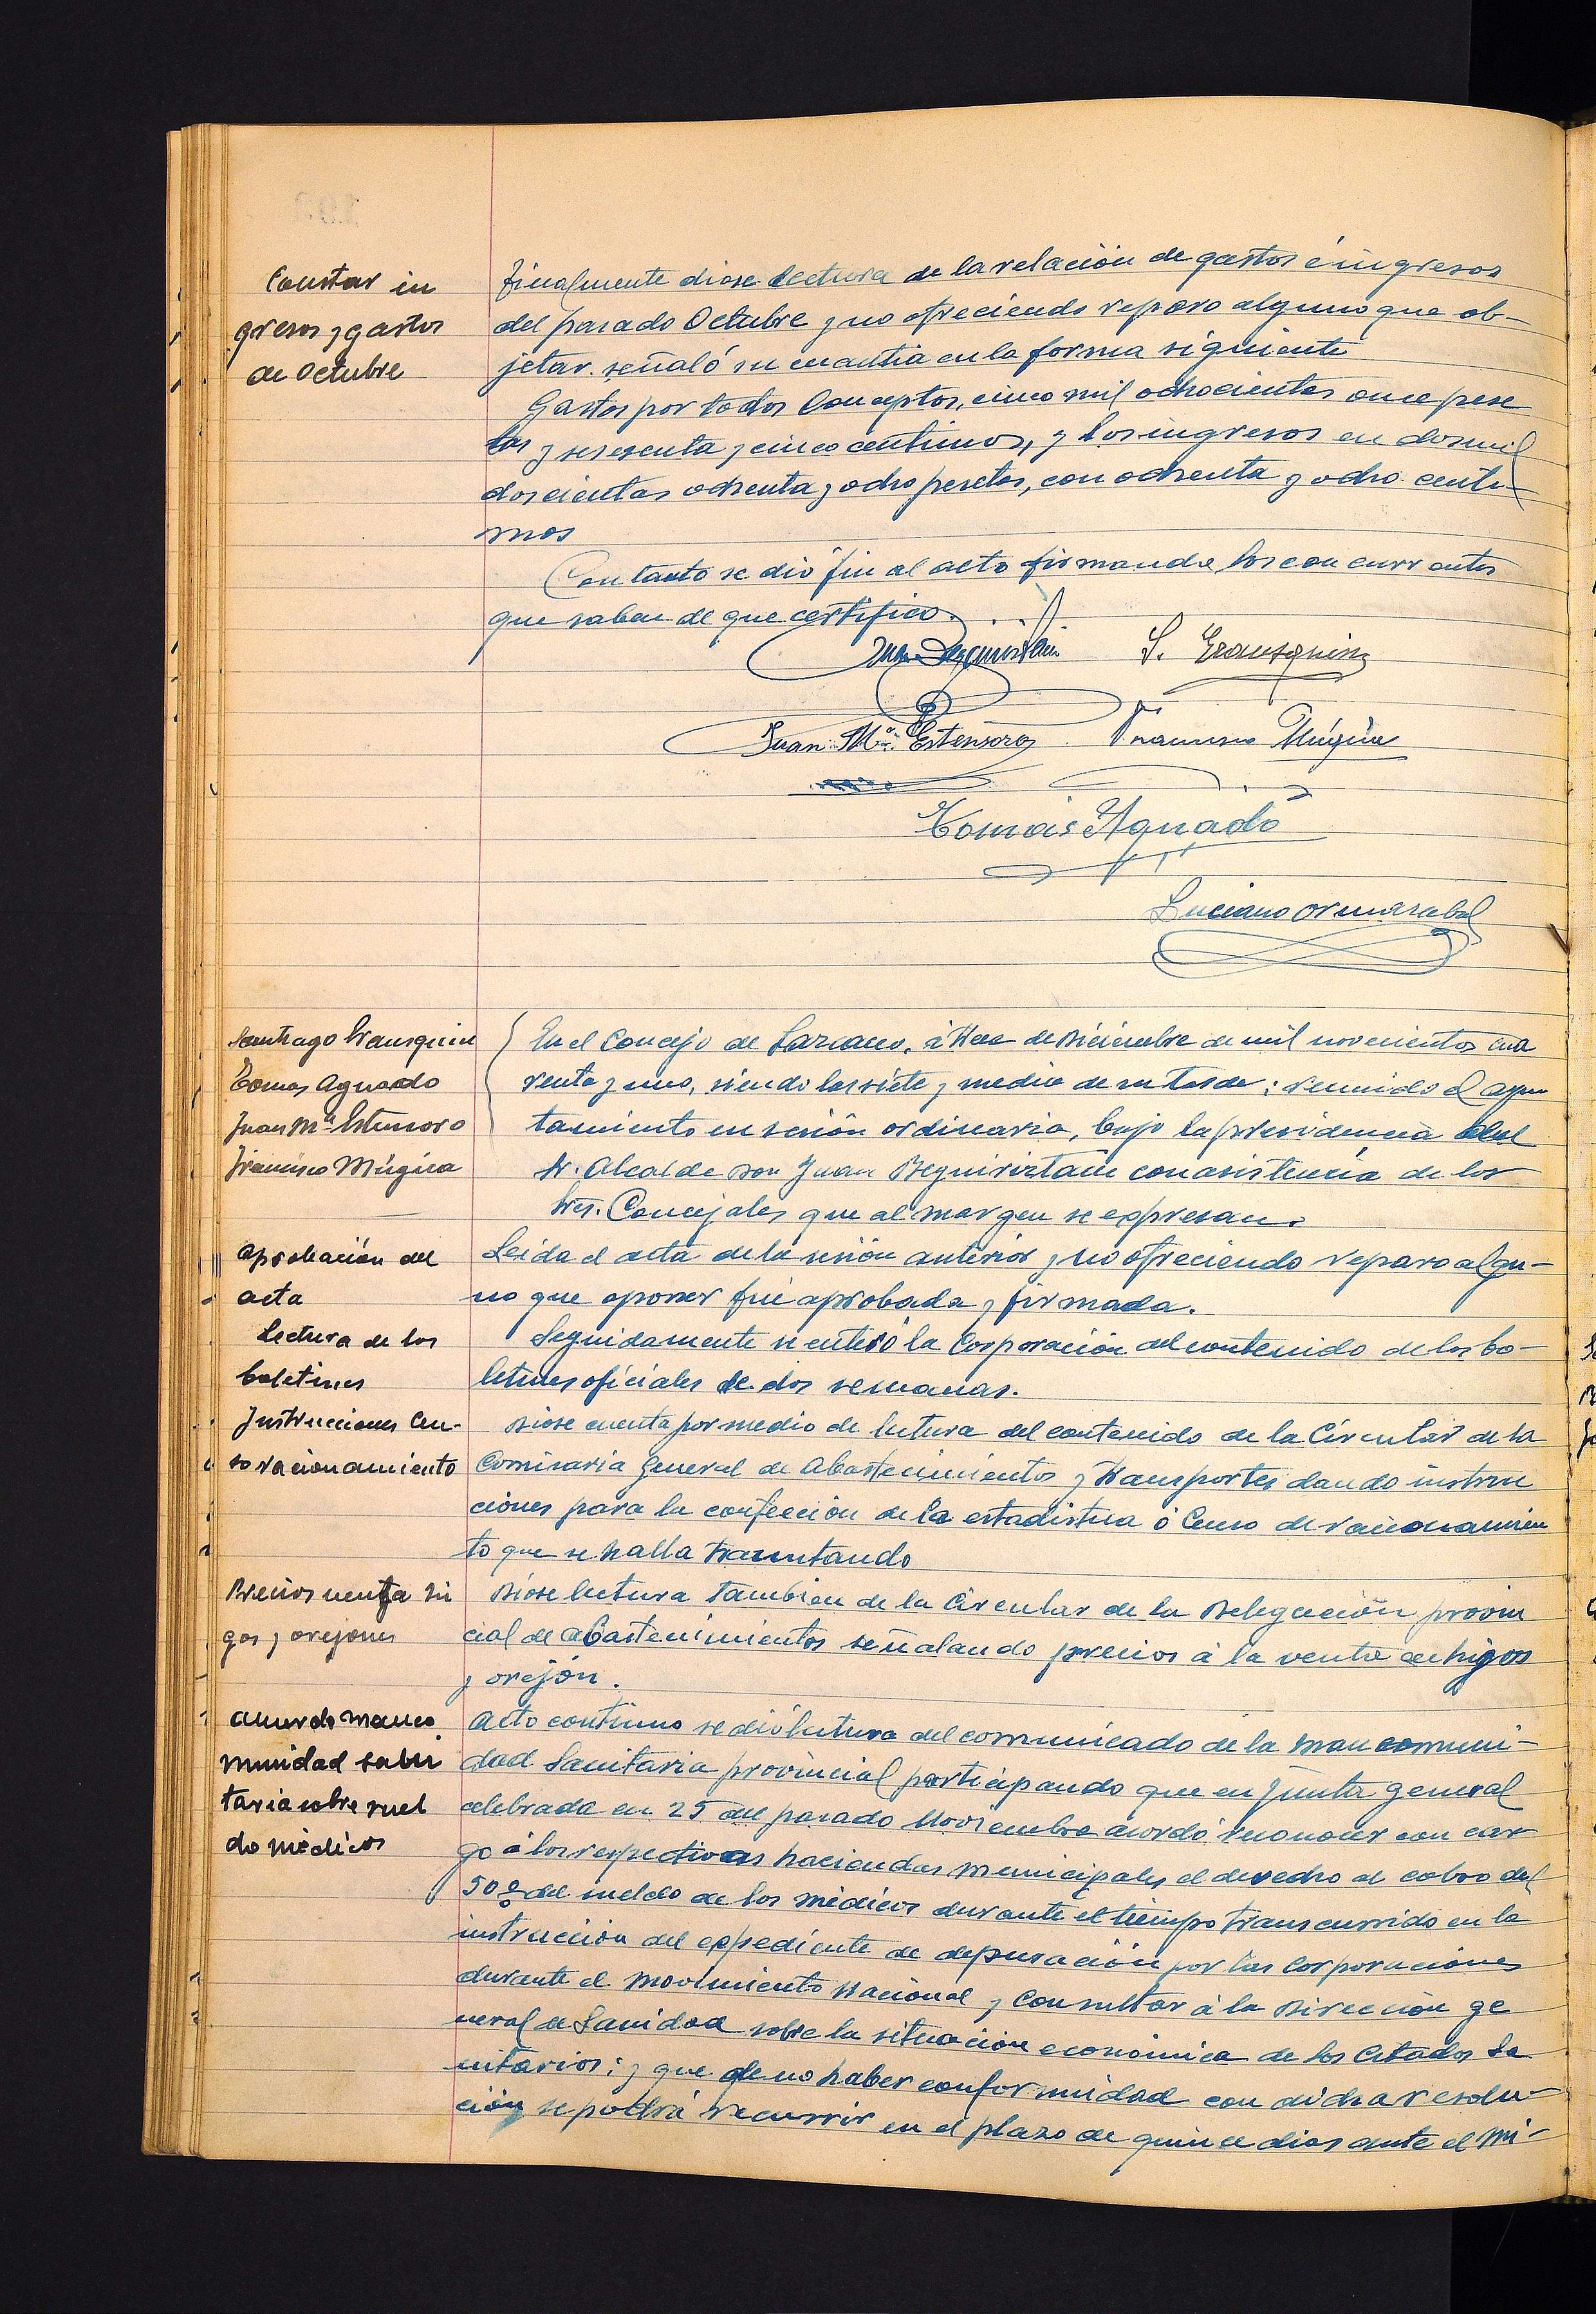 Constar in
gresos y gastos
de Octubre
finalmente diose lectura de la relación de gastos é ingresos
del pasado Octubre y no ofreciendo reparo alguno que ob-
jetar. señaló su cuantia en la forma siguiente
Gastos por todos Conceptos, cinco mil ochocientas once pese
tas y sesenta y cinco centimos, y los ingresos en dos mil
doscientas ochenta y ocho pesetas, con ochenta y ocho centi-
mos
Con tanto se dió fin al acto firmando los concurrentes
que saben de que certifico.
Juan Beguiristain S. Irausquin
Juan Mª Estensoro Francisco Múgica
Tomás Aguado
Luciano Ormazabal
Santiago Irausquin
Tomas Aguado
Juan Mª Estensoro
Francisco Múgica
En el Concejo de Lazcano, á trece de Diciembre de mil novecientos cua
renta y uno, siendo las siete y media de su tarde; reunido el ayun
tamiento en sesión ordinaria, bajo la presidencia del
Sr. Alcalde Don Juan Beguiriztain con asistencia de los
Sres. Concejales que al margen se expresan.
Aprobación del
acta
Leida el acta de la sesión anterior y no ofreciendo reparo algu-
no que oponer fué aprobada y firmada.
Lectura de los
boletines
Seguidamente se enteró la Corporación del contenido de los bo-
letines oficiales de dos semanas.
Instrucciones Cen-
so racionamiento
Diose cuenta por medio de lectura del contenido de la Circular de la
Comisaria General de Abastecimientos y Transportes dando instruc
ciones para la confección de la estadistica ó Censo de racionamien
to que se halla tramitando
Precios venta hi
gos y orejones
Diose lectura tambien de la Circular de la Delegación provin
cial de abastecimientos señalando precios á la venta de higos
y orejón.
Acuerdo manco
munidad sani
taria sobre suel
do médicos
Acto continuo se dió lectura del comunicado de la mancomuni-
dad Sanitaria provincial participando que en Junta general
celebrada en 25 del pasado Noviembre acordó reconocer con car
go á los respectivas haciendas municipales el derecho al cobro del
50% del sueldo de los médicos durante el tiempo transcurrido en la
instrucción del expediente de depuración por las Corporaciones
durante el Movimiento Nacional y Consultar á la Dirección ge
neral de Sanidad sobre la situación económica de los citados Sa
nitarios; y que de no haber conformidad con dicha resolu-
ción se podrá recurrir en el plazo de quince dias ante el Mi-